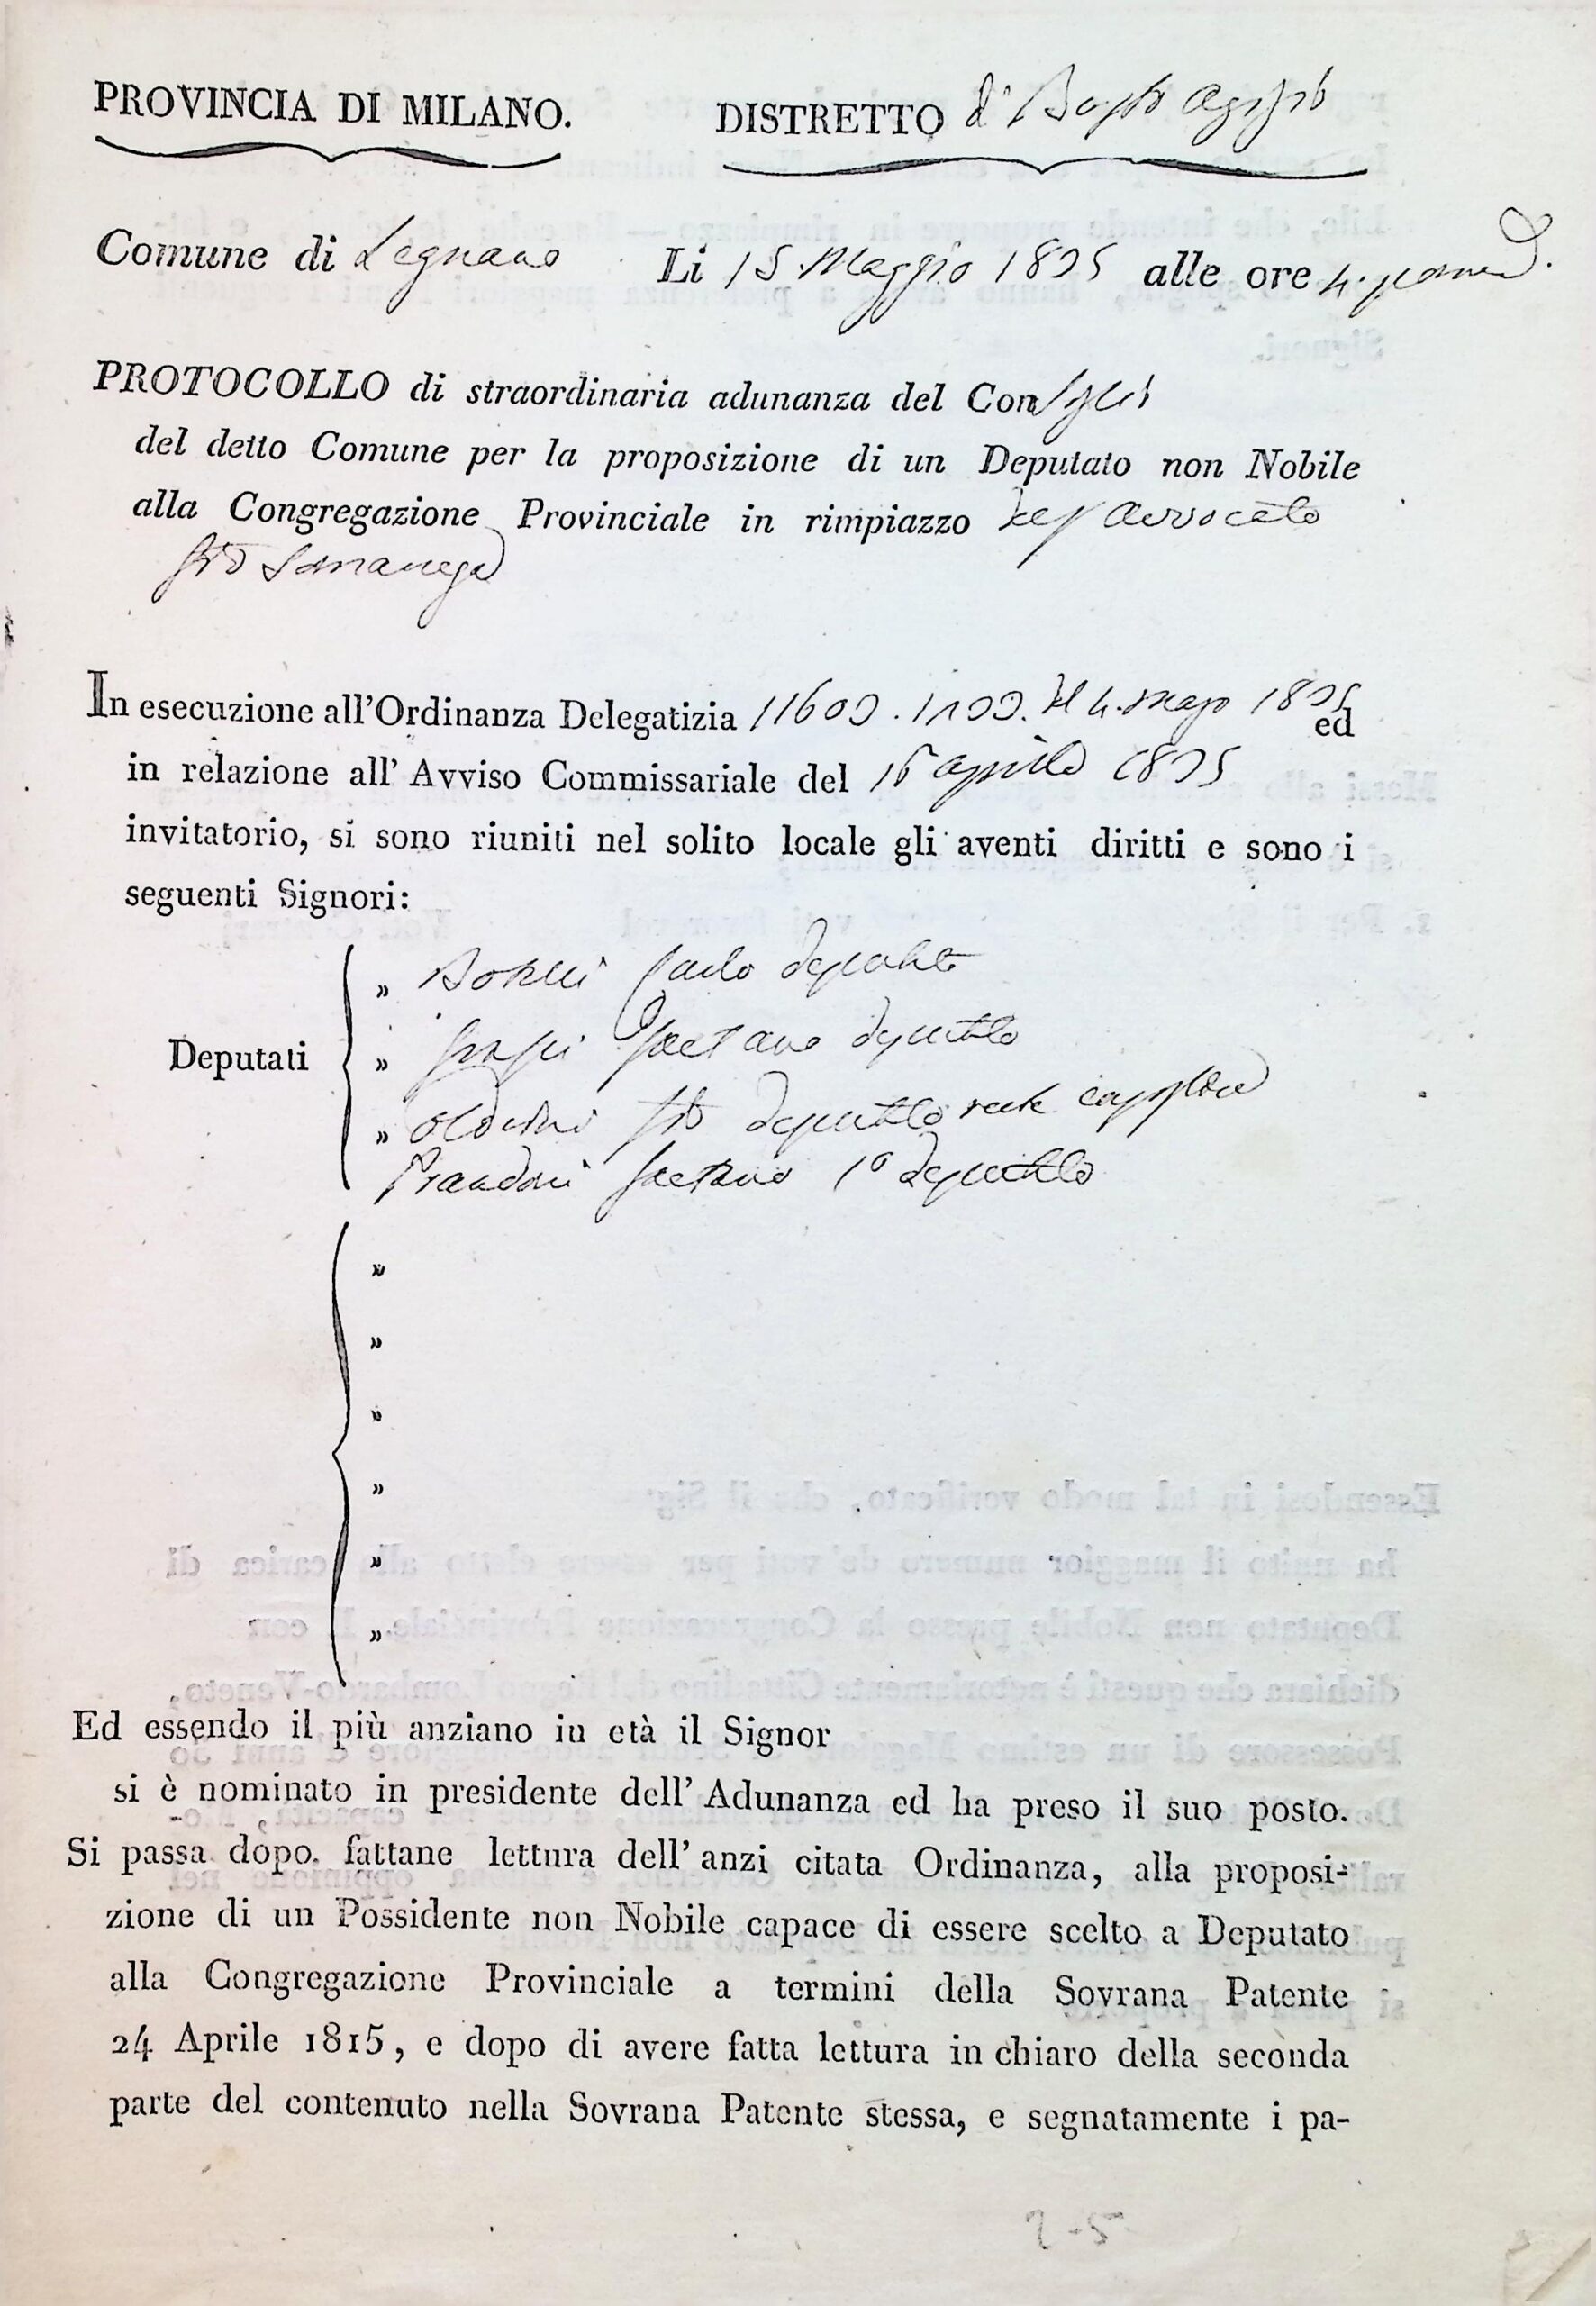 PROVINCIA DI MILANO. DISTRETTO di Busto Arsizio
Comune di Legnano Li 15 Maggio 1835 alle ore 4. pomerid.
PROTOCOLLO di straordinaria adunanza del Consiglio
del detto Comune per la proposizione di un Deputato non Nobile
alla Congregazione Provinciale in rimpiazzo avvocato
In esecuzione all'Ordinanza Delegatizia 4. 1835 ed
in relazione all' Avviso Commissariale del aprile 1835
invitatorio, si sono riuniti nel solito locale gli aventi diritti e sono i
seguenti Signori:
» Carlo deputato
Deputati » Gaetano deputato
» deputato
Prandoni Gaetano 1° deputato
»
»
»
»
»
»
Ed essendo il più anziano in età il Signor
si è nominato in presidente dell' Adunanza ed ha preso il suo posto.
Si passa dopo. fattane lettura dell' anzi citata Ordinanza, alla proposi-
zione di un Possidente non Nobile capace di essere scelto a Deputato
alla Congregazione Provinciale a termini della Sovrana Patente
24 Aprile 1815, e dopo di avere fatta lettura in chiaro della seconda
parte del contenuto nella Sovrana Patente stessa, e segnatamente i pa-
2-5